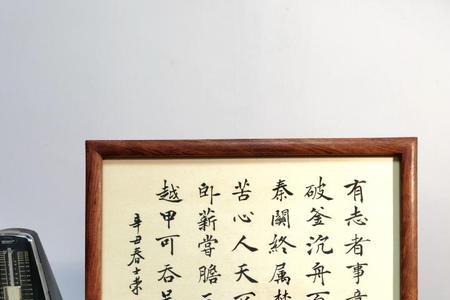 有志者事竟
破釜沉舟百
秦關終属楚
苦心人天
卧薪嘗膽
越甲可吞吴
辛丑春士荣